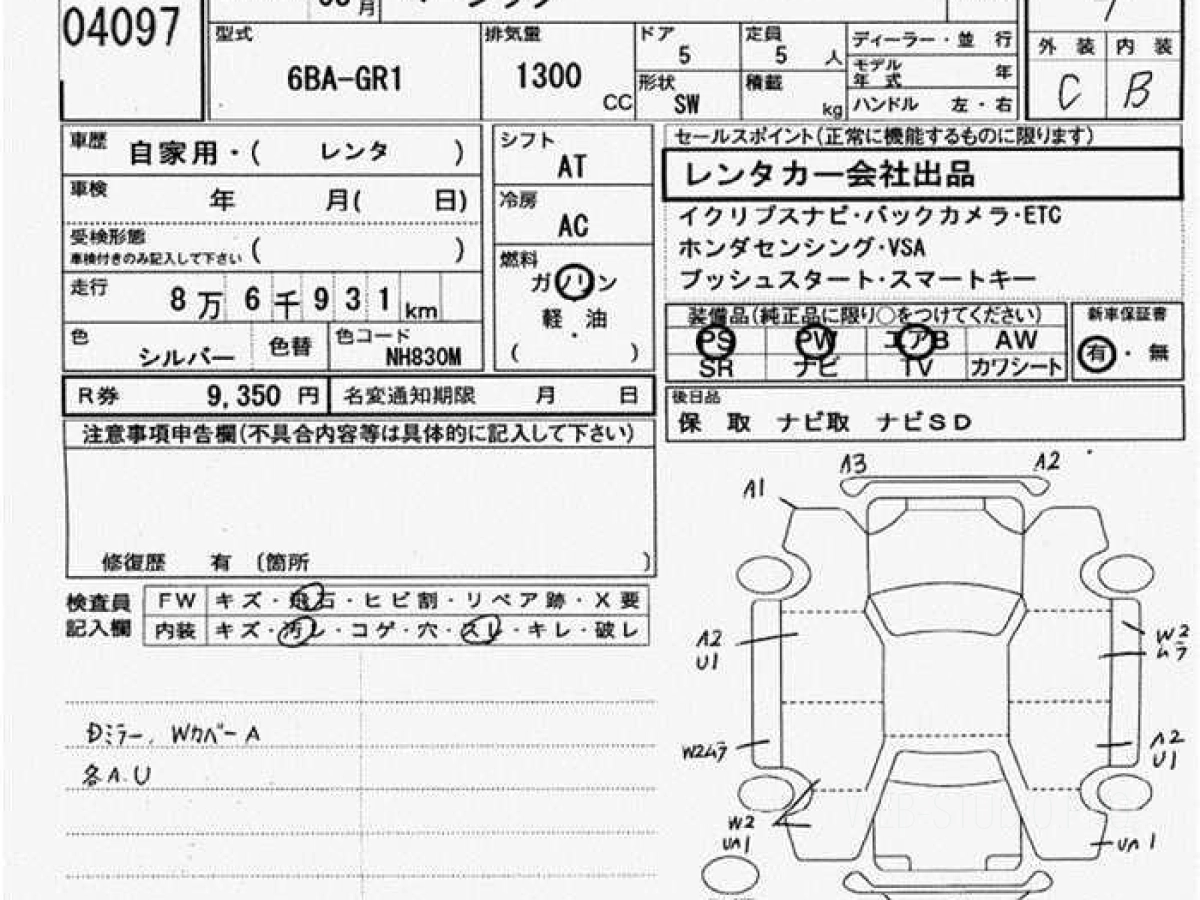 04097
月
型式 6BA-GR1
排気量 1300 CC
ドア 5
定員 5 人
形状 SW
積載 kg
ディーラー・並 行
モデル年式 年
ハンドル 左・右
外 装 内 装
C B
車歴 自家用・( レンタ )
車検 年 月( 日)
受検形態
車検付きのみ記入して下さい ( )
走行 8万6千931km
色 シルバー 色替 色コード NH830M
シフト AT
冷房 AC
燃料
ガソリン
軽・油
( )
セールスポイント(正常に機能するものに限ります)
レンタカー会社出品
イクリプスナビ・バックカメラ・ETC
ホンダセンシング・VSA
プッシュスタート・スマートキー
装備品(純正品に限り○をつけてください)
PS PW エアB AW
SR ナビ TV カワシート
新車保証書
有・無
R券 9,350 円 名変通知期限 月 日
後日品
保 取 ナビ取 ナビSD
注意事項申告欄(不具合内容等は具体的に記入して下さい)
修復歴 有 〔箇所 〕
検査員記入欄
FW キズ・飛石・ヒビ割・リペア跡・X要
内装 キズ・汚レ・コゲ・穴・スレ・キレ・破レ
Dミラー、WカバーA
各A.U
A3
A2
A1
A2
U1
W2
ムラ
W2ムラ
A2
U1
W2
Uハ1
Uハ1